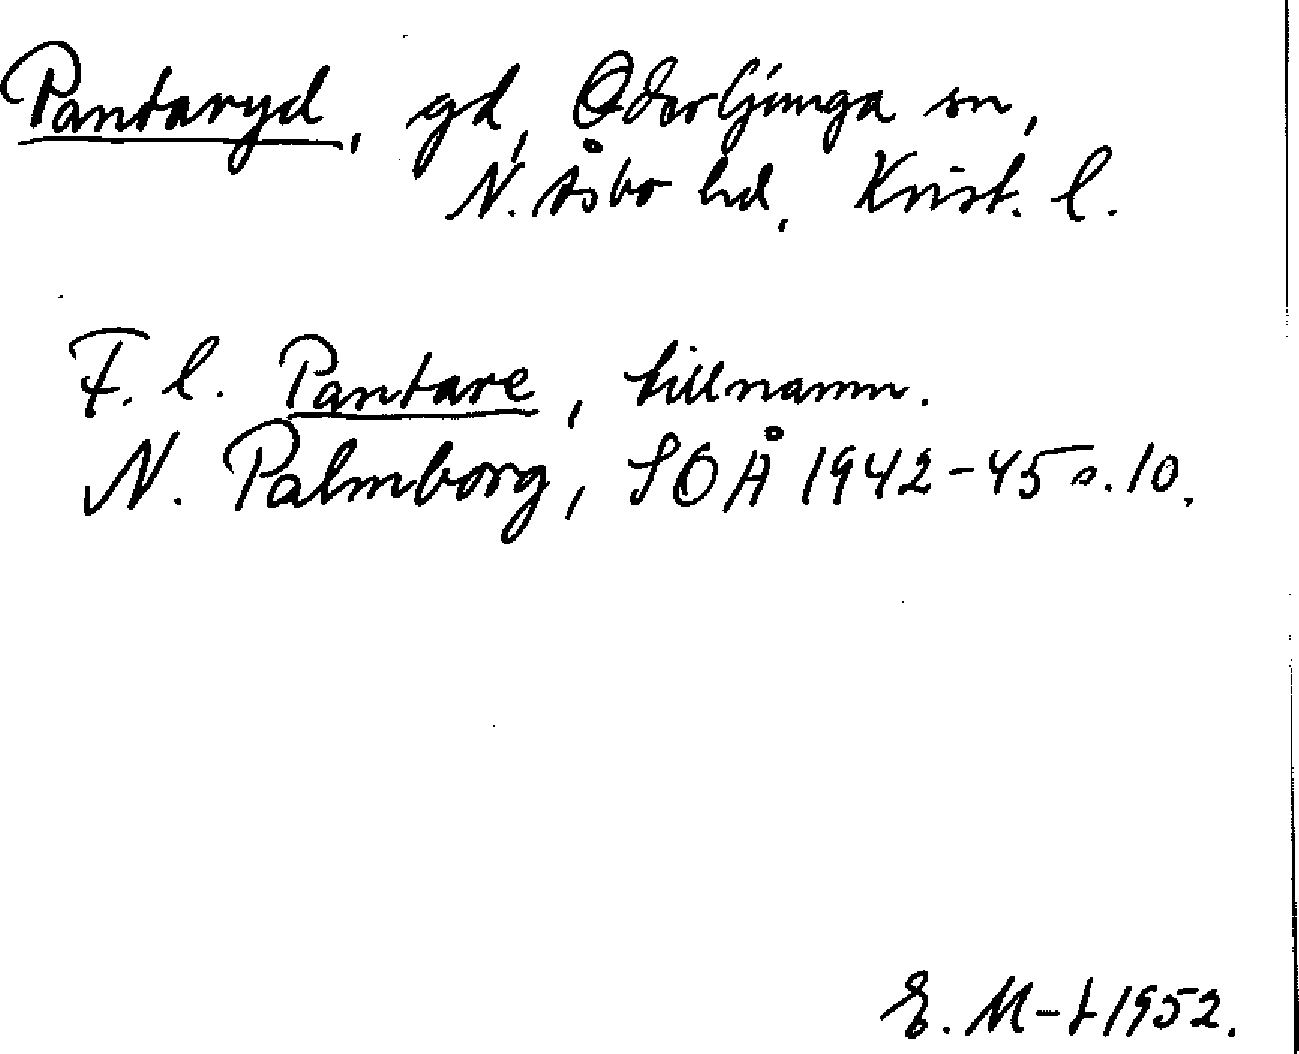 Pantaryd, gd, Oderljunga sn,
N. Åsbo hd, Krist. l.
F. l. Pantare, tillnamn.
N. Palmborg, SOÅ 1942-45 s. 10.
E. M-t 1952.